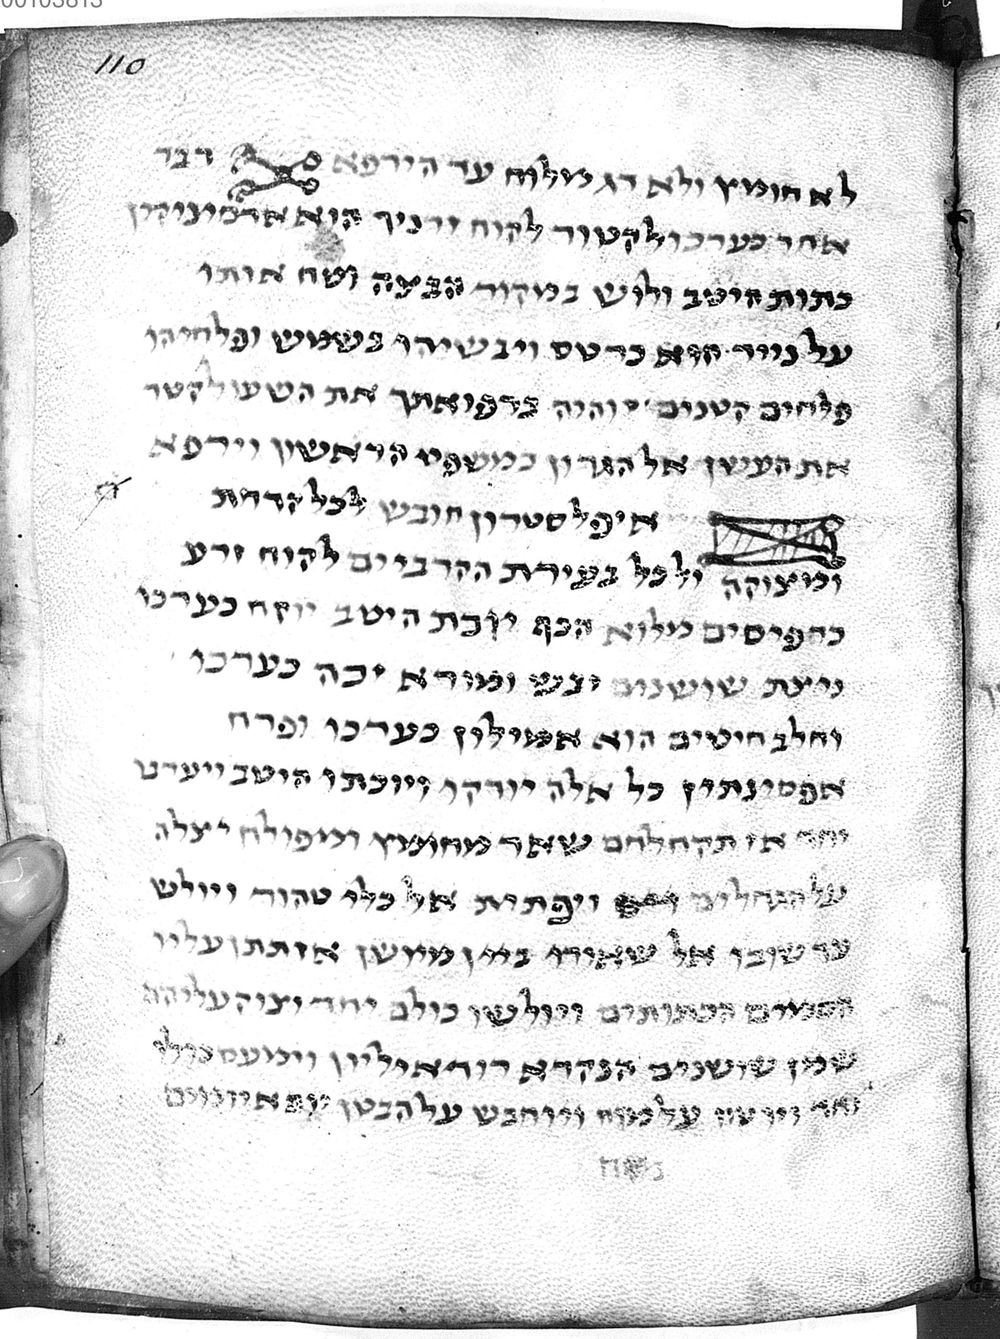 00103813
110
לא חומץ ולא דג מלוח עד הירפא דבר
אחר כערכו לקטור לקוח זרניך הוא ארסיניקון
כתות היטב ולוש במקור הבצה וטח אותו
על נייר הוא כרטס ויבשיהו בשמש ופלחיהו
פלחים קטנים והיה ברפואתך את השעול קטר
את העשן אל הגרון כמשפט הראשון וירפא
איפלסטרון חובש לכל קדחת
ומצוקה ולכל בעירת הקרביים לקוח זרע
כרפיסים מלוא הכף יוכת היטב יוקח כערכו
ניצת שושנים יבש ומורא יכה כערכו
וחלב חיטים הוא אמילון כערכו ופרח
אפסינתין כל אלה יורקו ויוכתו היטב וייערבו
יחד אז תקח לחם שאר מחומץ ומפולח יצלה
על הגחלים ויפתית אל כלי טהור ויולש
עד שובו אל שאורו ביין מיושן אז תתן עליו
הסמים הכתותים ויולשו כולם יחד וצוק עליהם
שמן שושנים הנקרא רודאיליון וימעס כולו
יחד על ויוחבש על הבטן